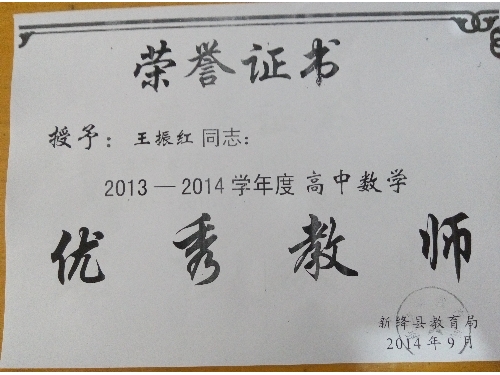 荣誉证书
授予：王振红同志：
2013—2014学年度高中数学
优秀教师
新绛县教育局
2014年9月